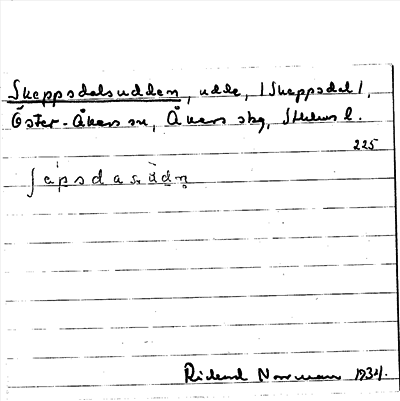 Skeppsdalsudden, udde, (Skeppsdal),
Öster-Åkers sn, Åkers skg, Sthlms l.
225
ʃapsdasudn̥
Rickard Norrman 1934.